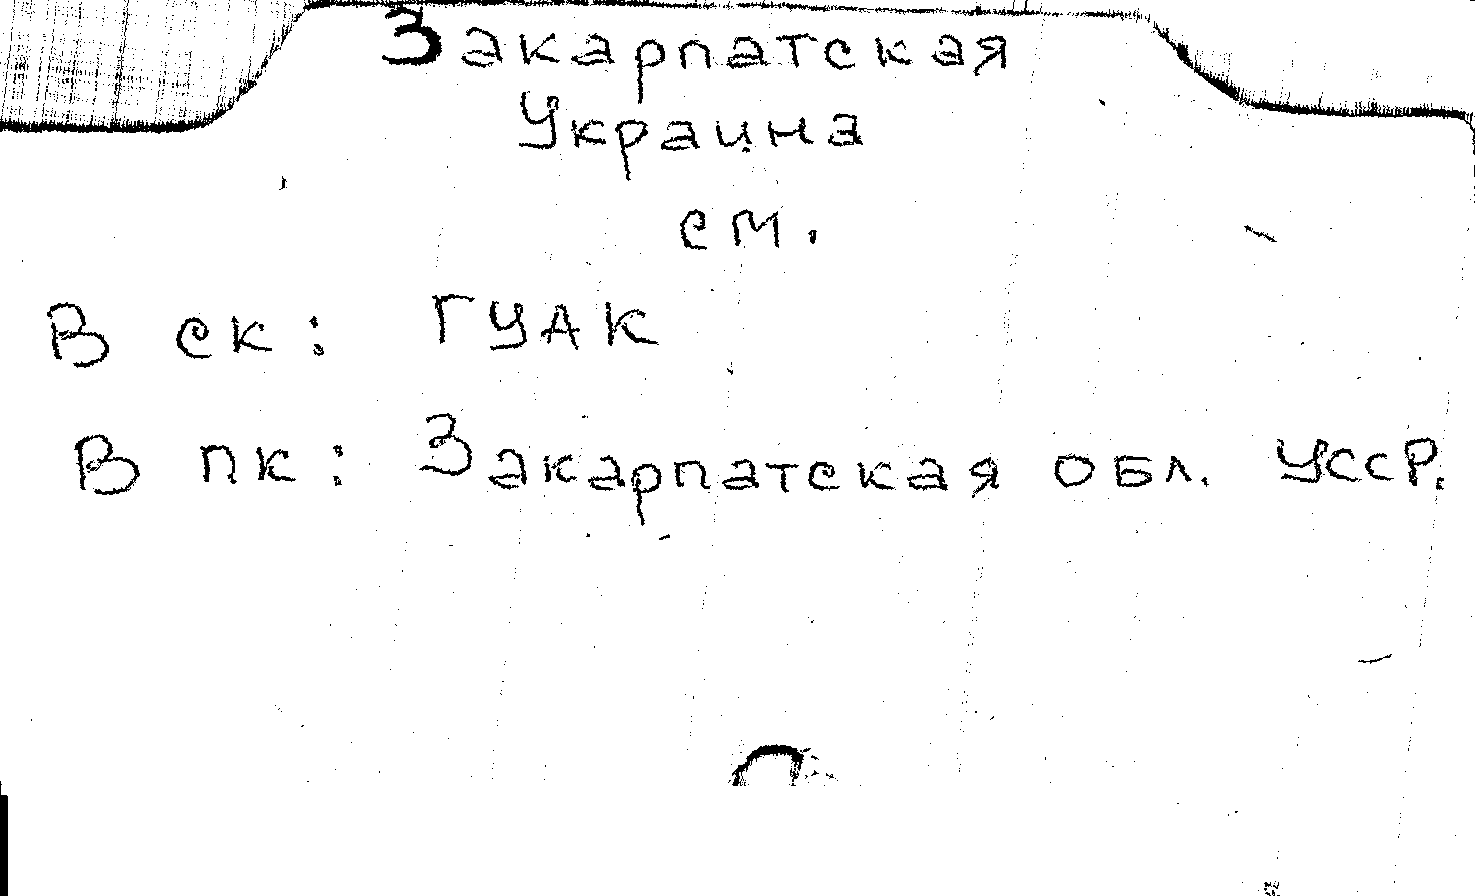 Закарпатская
Украина
см.
В ск: ГУАК
В пк: Закарпатская обл. УССР.